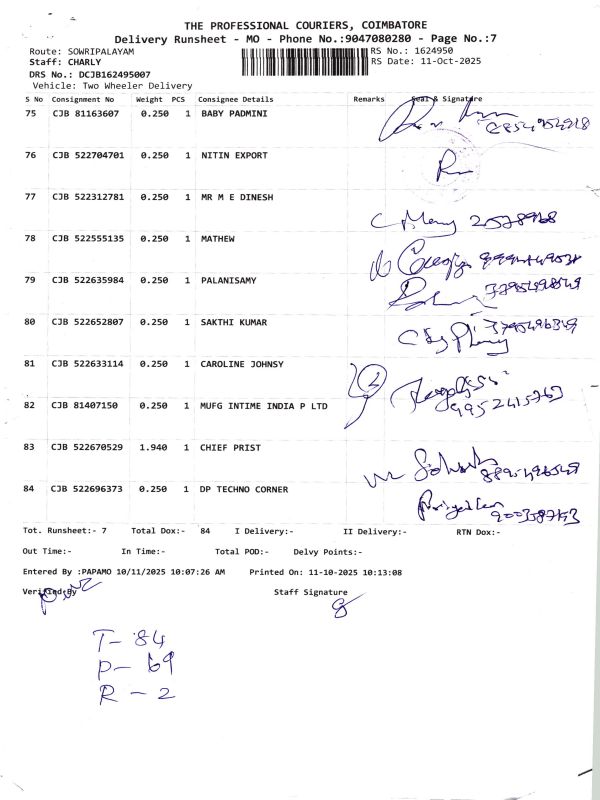 THE PROFESSIONAL COURIERS, COIMBATORE
Delivery Runsheet - MO - Phone No.:9047080280 - Page No.:7
Route: SOWRIPALAYAM RS No.: 1624950
Staff: CHARLY RS Date: 11-Oct-2025
DRS No.: DCJB162495007
Vehicle: Two Wheeler Delivery
S No Consignment No Weight PCS Consignee Details Remarks Seal & Signature
75 CJB 81163607 0.250 1 BABY PADMINI
76 CJB 522704701 0.250 1 NITIN EXPORT
77 CJB 522312781 0.250 1 MR M E DINESH
78 CJB 522555135 0.250 1 MATHEW
79 CJB 522635984 0.250 1 PALANISAMY
80 CJB 522652807 0.250 1 SAKTHI KUMAR
81 CJB 522633114 0.250 1 CAROLINE JOHNSY
82 CJB 81407150 0.250 1 MUFG INTIME INDIA P LTD
9952415763
83 CJB 522670529 1.940 1 CHIEF PRIST
84 CJB 522696373 0.250 1 DP TECHNO CORNER
Tot. Runsheet:- 7 Total Dox:- 84 I Delivery:- II Delivery:- RTN Dox:-
Out Time:- In Time:- Total POD:- Delvy Points:-
Entered By :PAPAMO 10/11/2025 10:07:26 AM Printed On: 11-10-2025 10:13:08
Verified By Staff Signature
T- 84
P- 69
R - 2